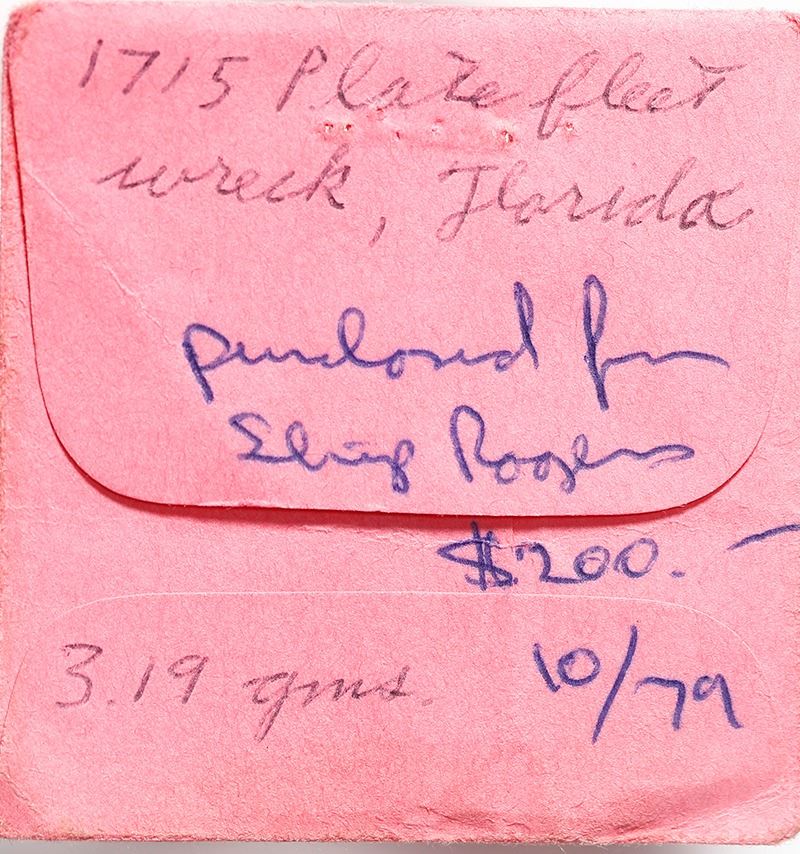 1715 Plate fleet
wreck, Florida
purchased from
Rogers
$200.—
3.19 gms. 10/79